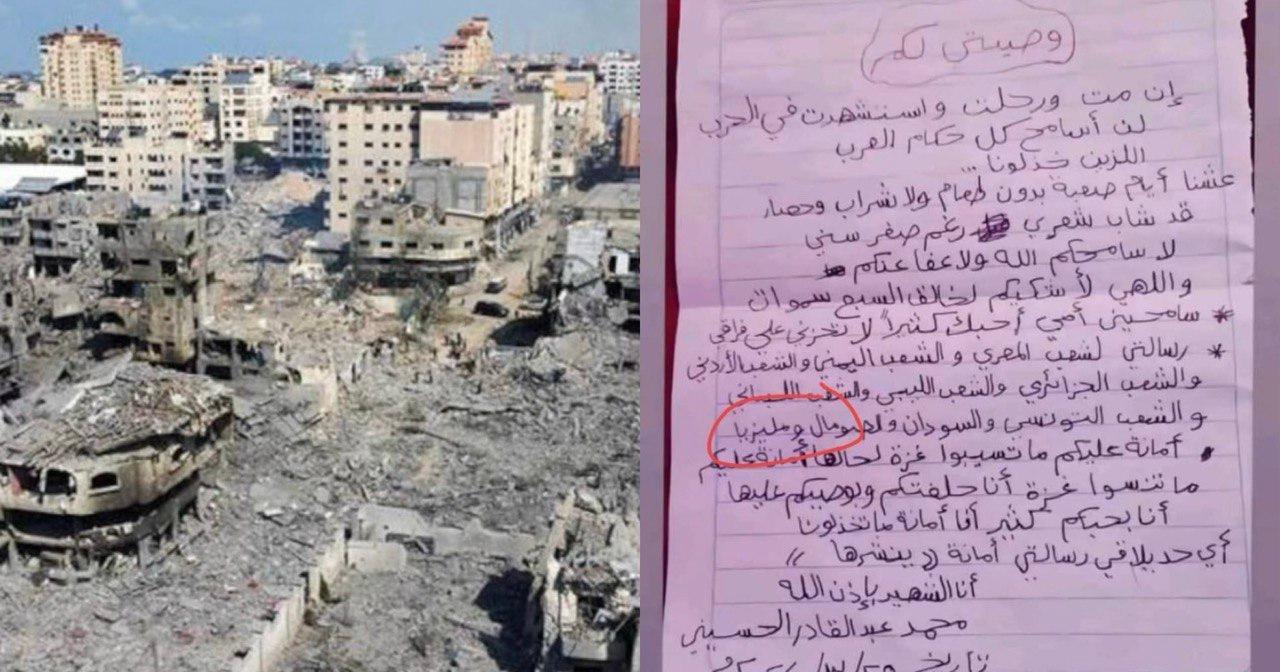 وصيتي لكم
إن مت ورحلت واستشهدت في الحرب
لن أسامح كل حكام العرب
اللزين خذلونا...
عشنا أيام صعبة بدون طعام ولا شراب وحصار
قد شاب شعري رغم صغر سني
لا سامحكم الله ولا عفا عنكم
واللهي لأشكيكم لخالق السبع سموات
* سامحيني أمي أحبك كثيراً لا تحزني على فراقي
* رسالتي لشعب المصري والشعب اليمني والشعب الأردني
والشعب الجزائري والشعب الليبي والشعب اللبناني
والشعب التونسي والسودان والصومال ومليزيا
أمانة عليكم ما تسيبوا غزة لحالها أمانة عليكم
ما تنسوا غزة أنا حلفتكم وبوصيكم عليها
أنا بحبكم كثير أنا أمانة ما تخذلونا
أي حد يلاقي رسالتي أمانة (( ينشرها ))
أنا الشهيد بإذن الله
محمد عبدالقادر الحسيني
تاريخ